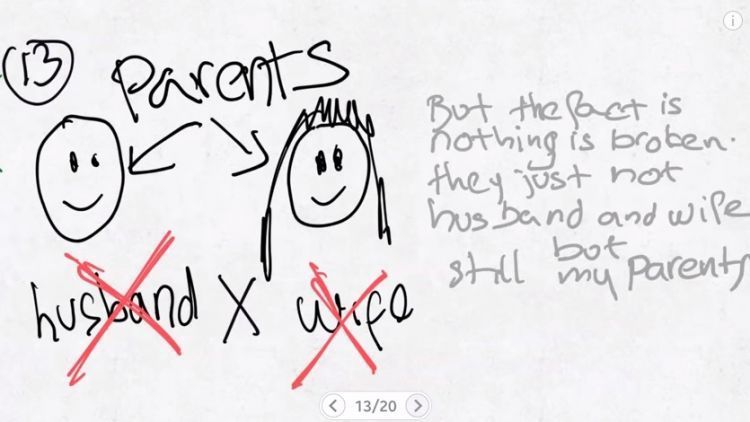 13
parents
husband X wife
But the fact is
nothing is broken.
they just not
husband and wife
still but my parents
13/20